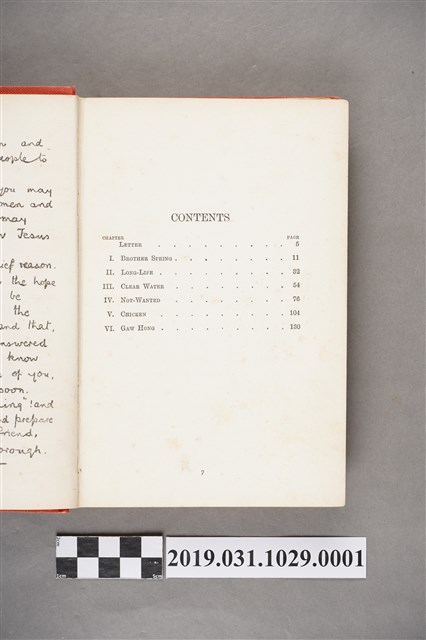 n and
eople to
you may
men and
may
w Jesus
ief reason.
s the hope
be
the
and that,
nswered
know
s of you.
soon.
ing"! and
d prepare
friend,
orough.
CONTENTS
CHAPTER PAGE
LETTER . . . . . . . . . . 5
I. BROTHER SPRING . . . . . . . . 11
II. LONG-LIFE . . . . . . . . . 32
III. CLEAR WATER . . . . . . . . 54
IV. NOT-WANTED . . . . . . . . 76
V. CHICKEN . . . . . . . . . 104
VI. GAW HONG . . . . . . . . . 130
7
1cm 5cm
2019.031.1029.0001